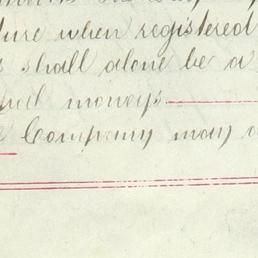 ture when registered
s shall alone be a
such moneys
Company may